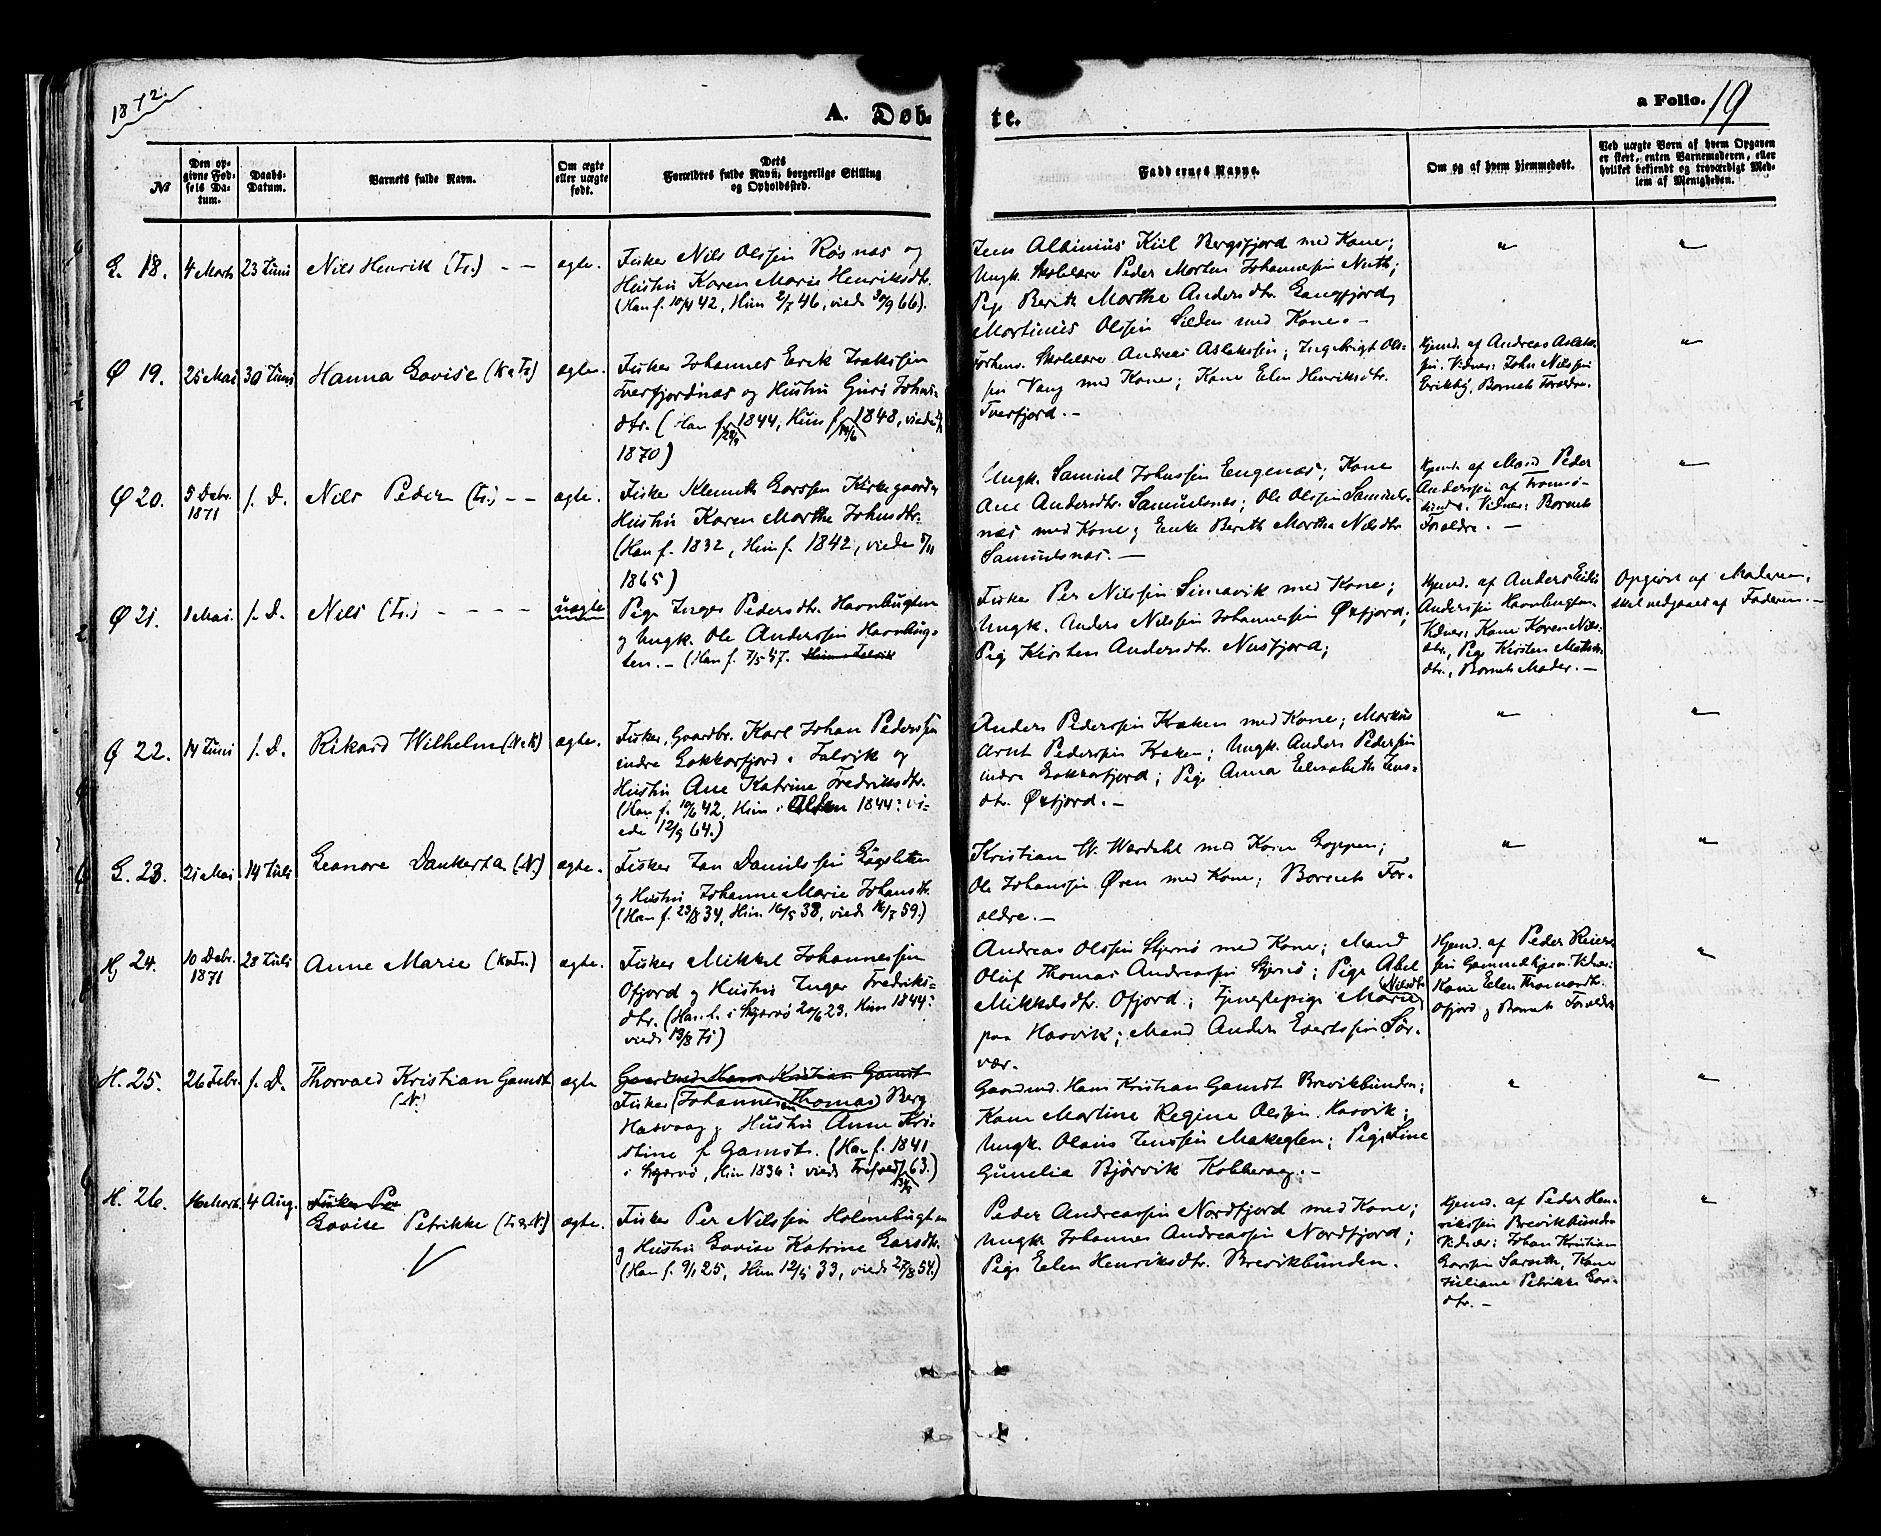 1872.
A. Døb-
te.
a Folio. 19
№
Den op-
givne Fød-
sels Da-
tum.
Daabs-
Datum.
Barnets fulde Navn.
Om ægte
eller uægte
født.
Dets
Forældres fulde Navn, borgerlige Stilling
og Opholdssted.
Faddernes Navne.
Om og af hvem hjemmedøbt.
Ved uægte Børn af hvem Opgaven
er skeet, enten Barnemoderen, eller
hvilket bekjendt og troværdigt Med-
lem af Menigheden.
18.
4 Marts
23 Juni
Nils Henrik (Fr.) - -
ægte.
Fisker Nils Olssen Rösnæs og
Hustru Karen Marie Henriksdtr.
(Han f. 42, Hun 2/7 46, viede 30/9 66).
Jens Albinius Kiil Bergsfjord med Kone;
Ungk. Skolelærer Peder Morten Johannessen
Pige Berit Marthe Andersdtr. Langfjord,
Martinus Olssen Silden med Kone. -
"
"
Ø 19.
25 Mai
30 Juni
Hanna Lovise
ægte.
Fisker Johannes Erik Isakssen
Tverfjordnæs og Hustru Guri Johns-
dtr. (Han f. 1844, Hun f. 14/6 1848, viede
1870)
Forhenv. Skolelærer Andreas Aslakssen; Ingebrigt Ols-
sen Vang med Kone; Kone Elen Henriksdtr.
Tverfjord. -
Hjemd. af Andreas Aslaks-
sen. Vidner: John Nilssen
Barnets Forældre.
"
Ø 20.
5 Debr.
1871
s. D.
Nils Peder - -
ægte.
Fisker Klemeth Larssen Kirkegaard
Hustru Karen Marthe Johnsdtr.
(Han f. 1832, Hun f. 1842, viede 5/11
1865)
Ungk. Samuel Johnssen Lengenæs; Kone
Ane Andersdtr. Samuelsnæs; Ole Olssen Samuels-
næs med Kone, Enke Berith Marthe Nilsdtr.
Samuelsnæs. -
Hjemd. af Mand Peder
Anderssen af Tromsö-
sund. Vidner: Barnets
Forældre. -
"
Ø 21.
1 Mai.
s. D.
Nils (Fr.) - - - -
uægte
Pige Inger Pedersdtr. Havnbugten
og Ungk. Ole Anderssen Havnbug-
ten. - (Han f. 7/5 47.
Fisker Per Nilssen Simavik med Kone;
Ungk. Anders Nilssen Johannessen Øxfjord;
Pige Kirsten Andersdtr. Nusfjord;
Hjemd. af Anders
Anderssen Havnbugten.
Vidner: Kone Karen Nils-
dtr., Pige Kirsten
dtr., Barnets Moder. -
Opgivet af Moderen,
skal vedgaaes af Faderen. -
22.
14 Juni
s. D.
Rikard Wilhelm
ægte.
Fisker, Gaardbr. Karl Johan Pederssen
indre Lokkarfjord i Talvik og
Hustru Ane Katrine Fredriksdtr.
(Han f. 10/6 42, Hun i Alten 1844? vi-
ede 12/9 64.)
Anders Pederssen Kraken med Kone; Markus
Arnt Pederssen Kraken; Ungk. Anders Pederssen
indre Lokkarfjord; Pige Anna Elisabeth Jens-
dtr. Øxfjord. -
"
"
23.
21 Mai
14 Juli
Leonore Dankerta (N.)
ægte.
Fisker Jan Danielssen Lögsletten
og Hustru Johanne Marie Johansdtr.
(Han f. 23/8 34, Hun 16/5 38, viede 59.)
Kristian W. Wardahl med Kone Loppen;
Ole Johanssen Øren med Kone; Barnets For-
ældre. -
"
"
24.
10 Debr.
1871
28 Juli
Anne Marie
ægte.
Fisker Mikkel Johannessen
Ofjord og Hustru Inger Fredriks-
dtr. (Han f. i Skjervö 20/6 23, Hun 1844?
viede 13/8 71)
Andreas Olssen Stjernö med Kone; Mand
Oluf Thomas Andreassen Stjernö; Pige Abel
Mikkelsdtr. Ofjord; Tjenestepige Marie Nilsdtr.
paa Haavik; Mand Anders Evertssen Sör-
vær.
Hjemd. af Peder Reiers-
sen Gammelhjem. Vidner:
Kone Elen Thomasdtr.
Ofjord og Barnets Forældre
"
H. 25.
26 Febr.
s. D.
Thorvald Kristian Gamst
(N.)
ægte
Gaardmd. Hans Kristian Gamst
Fisker Johannes Thomas Berg
Hasvaag og Hustru Anne Kri-
stine f. Gamst. (Han f. 1841
i Skjervö, Hun 1836? viede 63.)
Gaardmd. Hans Kristian Gamst Brevikbunden;
Kone Martine Regine Olssen Haavik;
Ungk. Olaus Jenssen Makeglen; Pige Line
Gunelia Björvik Kobbervaag. -
"
"
H. 26.
4 Aug.
Fisker Per
Lovise Petrikke
ægte.
Fisker Per Nilssen Holmebugten
og Hustru Lovise Katrine Larsdtr.
(Han f. 9/1 25, Hun 12/5 33, viede 27/8 54.)
Peder Andreassen Nordfjord med Kone;
Ungk. Johannes Andreassen Nordfjord;
Pige Elen Henriksdtr. Brevikbunden.
Hjemd. af Peder Hen-
rikssen Brevikbunden
Vidner: Johan Kristian
Larssen Kone
Juliane Petrikke Lars-
dtr. -
"